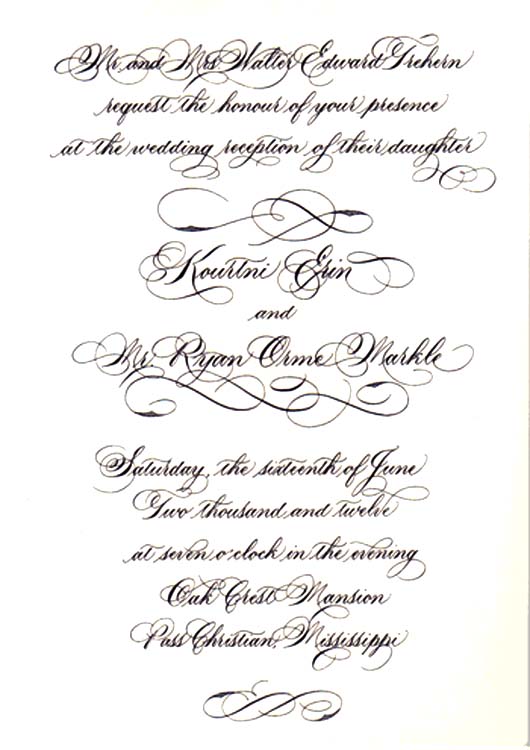 Mr. and Mrs Walter Edward Trehern
request the honour of your presence
at the wedding reception of their daughter
Kourtni Erin
and
Mr. Ryan Orme Markle
Saturday, the sixteenth of June
Two thousand and twelve
at seven o'clock in the evening
Oak Crest Mansion
Pass Christian, Mississippi